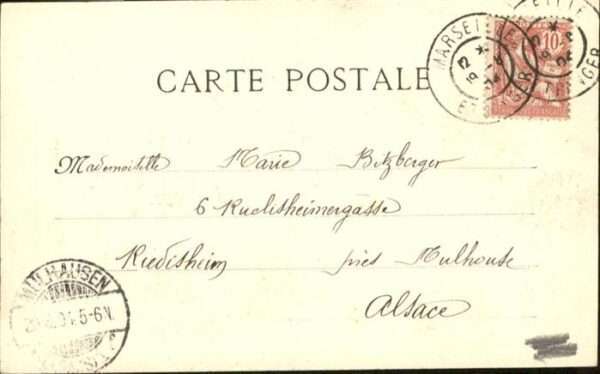 CARTE POSTALE
MARSEILLE
ETRANGER
10
Mademoiselle Marie Bitzberger
6 Ruelisheimergasse
Riedisheim près Mulhouse
Alsace
MÜLHAUSEN
5-6N.